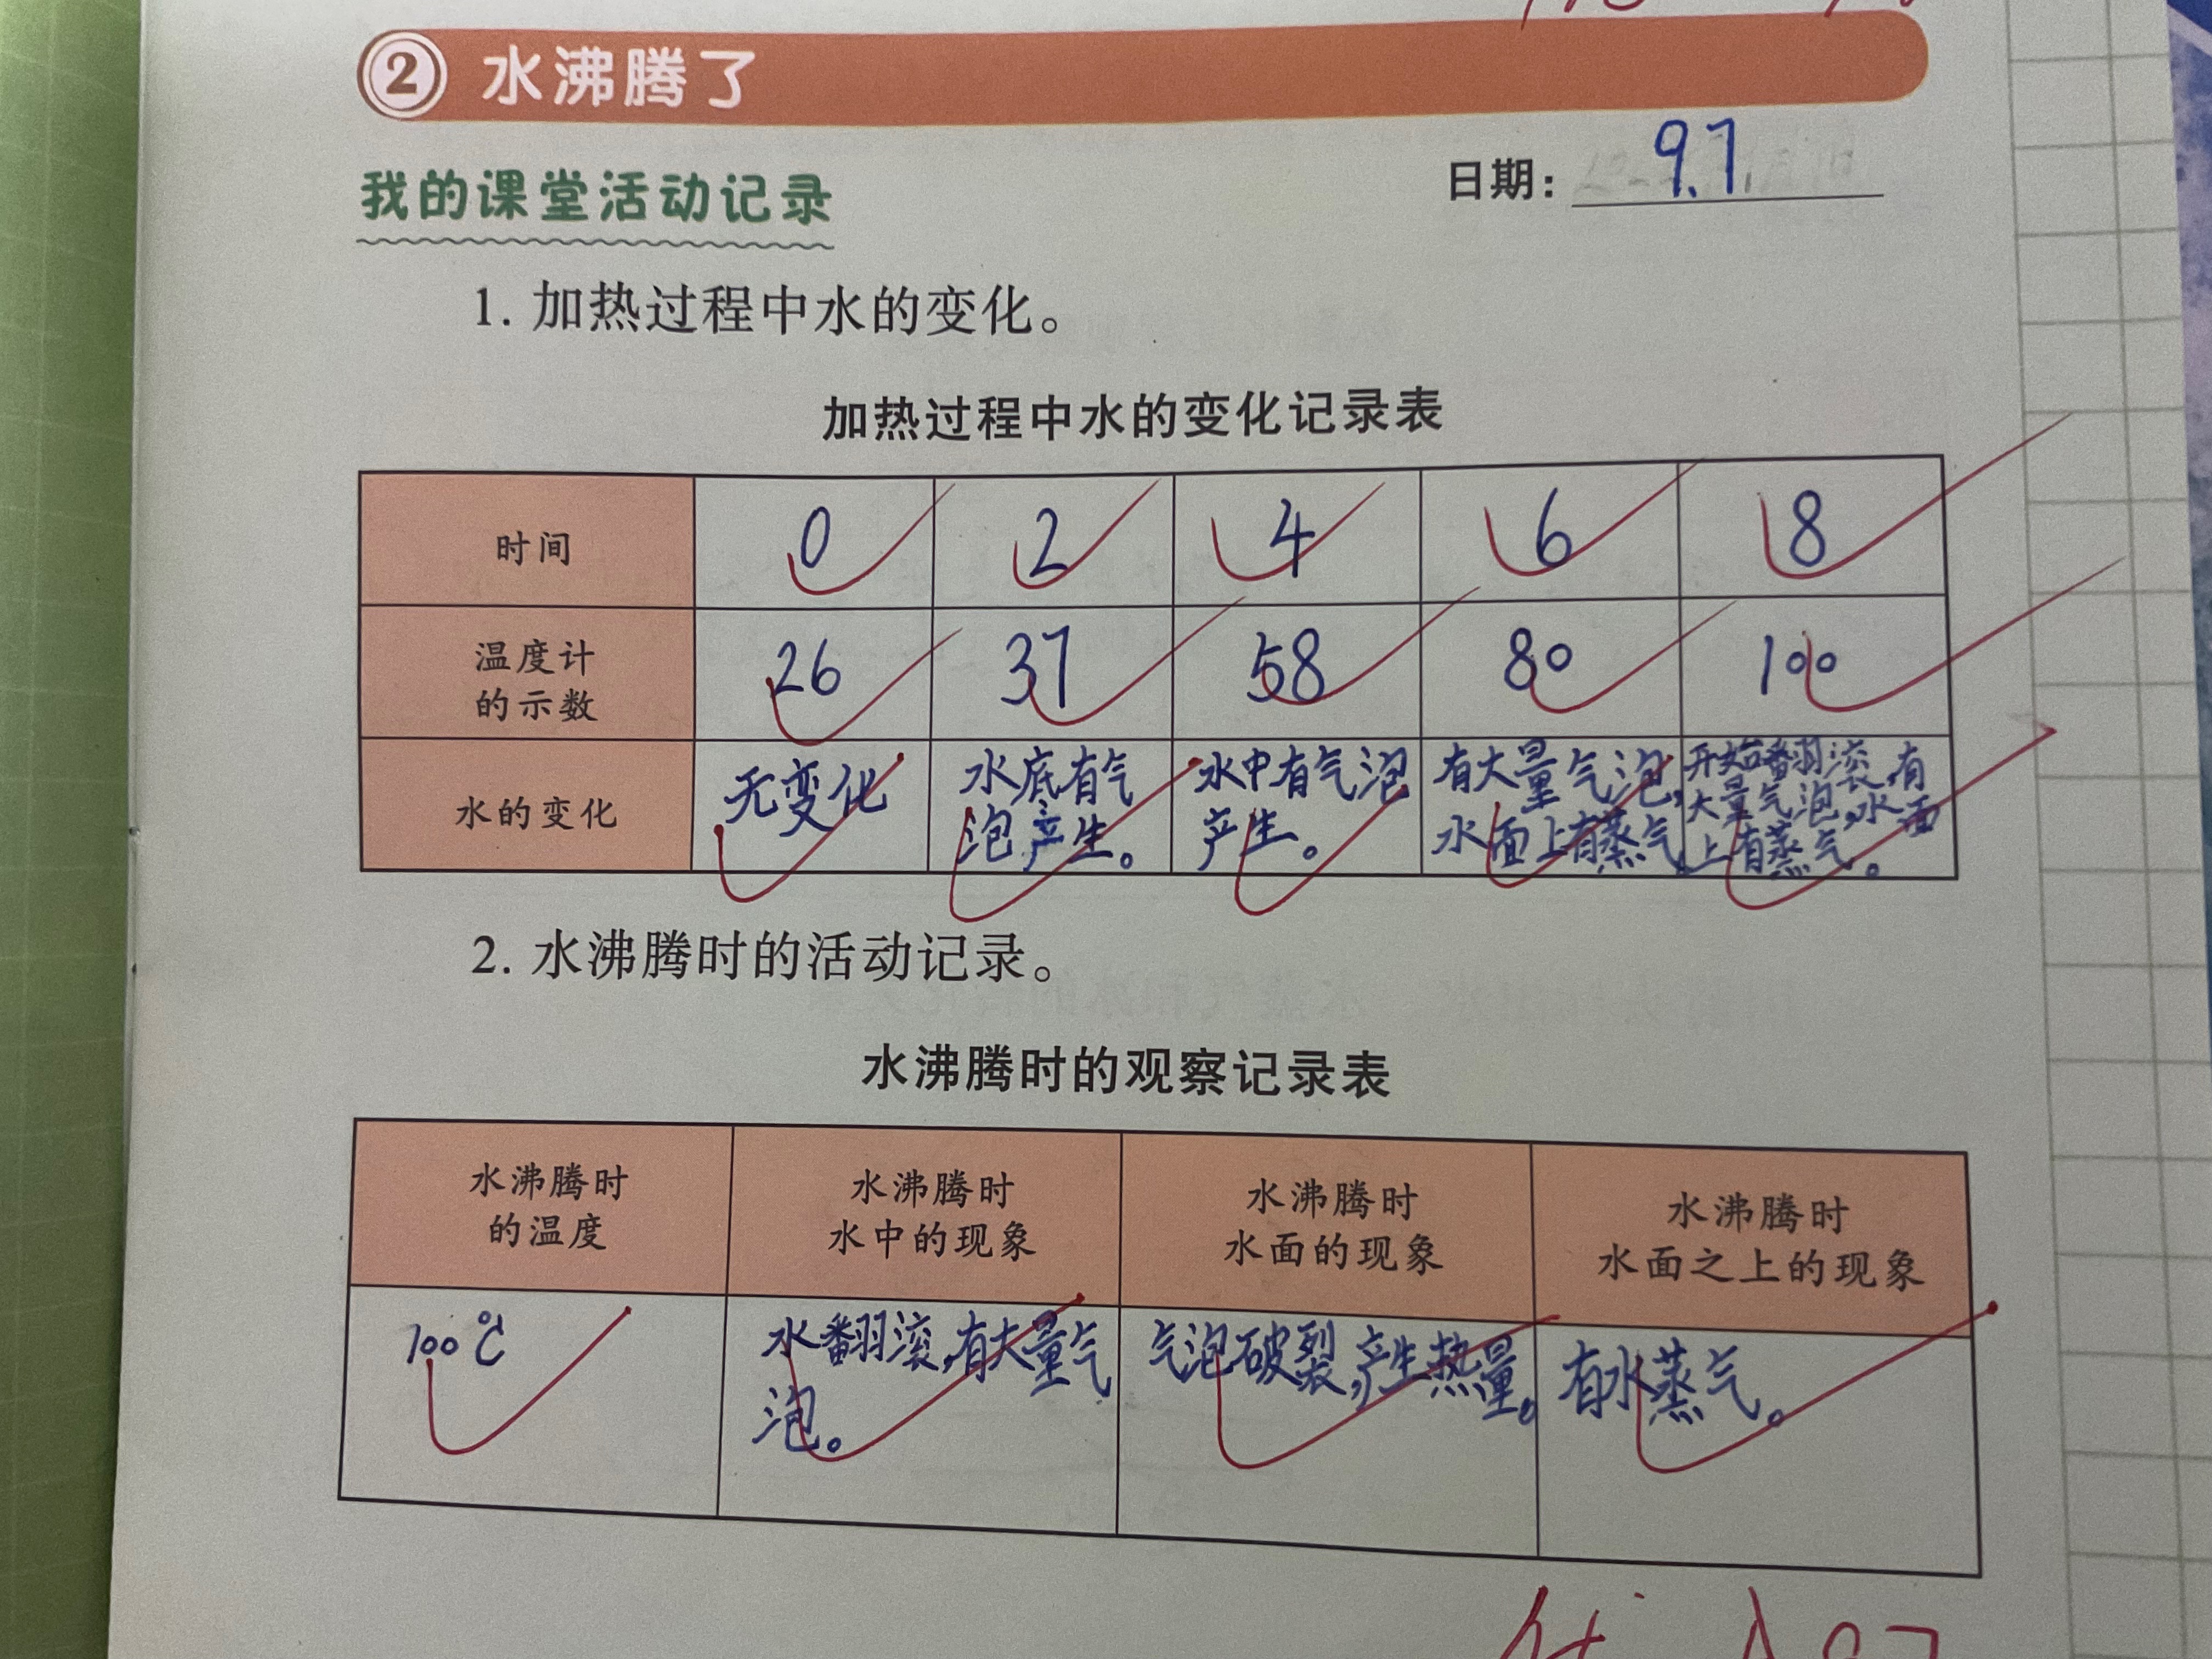 ② 水沸腾了
我的课堂活动记录
日期: 9.7
1. 加热过程中水的变化。
加热过程中水的变化记录表
时间 0 2 4 6 8
温度计
的示数
26 37 58 80 100
水的变化
无变化
水底有气
泡产生。
水中有气泡
产生。
有大量气泡,
水面上有蒸气
开始翻滚,有
大量气泡,水面
上有蒸气。
2. 水沸腾时的活动记录。
水沸腾时的观察记录表
水沸腾时
的温度
水沸腾时
水中的现象
水沸腾时
水面的现象
水沸腾时
水面之上的现象
100℃
水翻滚,有大量气
泡。
气泡破裂,产生热量。
有水蒸气。